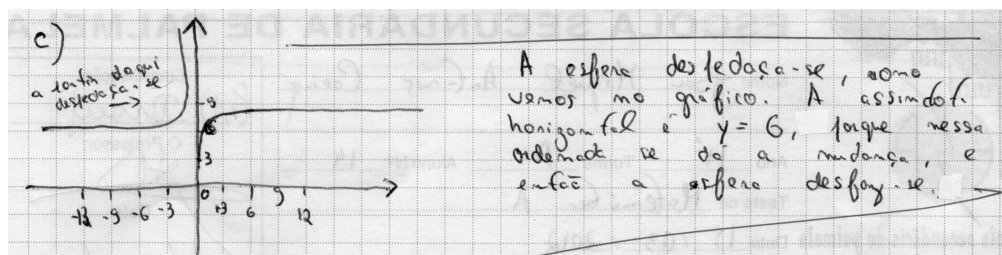 c)
a partir daqui
despedaça-se
9
6
3
-12 -9 -6 -3 0 +3 6 9 12
A esfera despedaça-se, como
vemos no gráfico. A assíndot.
horizontal é y = 6, porque nessa
ordenada se dá a mudança, e
então a esfera desfaz-se.